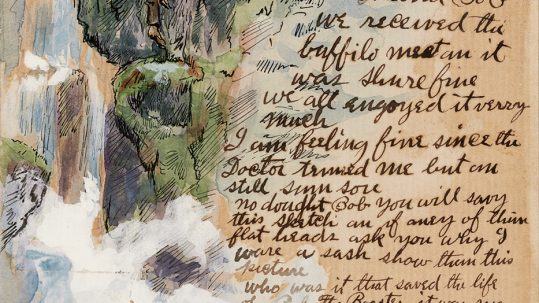 Bob
we received the
buffilo meet an it
was shure fine
we all engoyed it verry
much
I am feeling fine since the
Doctor trimed me but am
still sum sore
no dought Bob You will savy
this sketch an if aney of them
flat heads ask you why I
ware a sash show them this
picture
who was it that saved the life
The Rooster it was